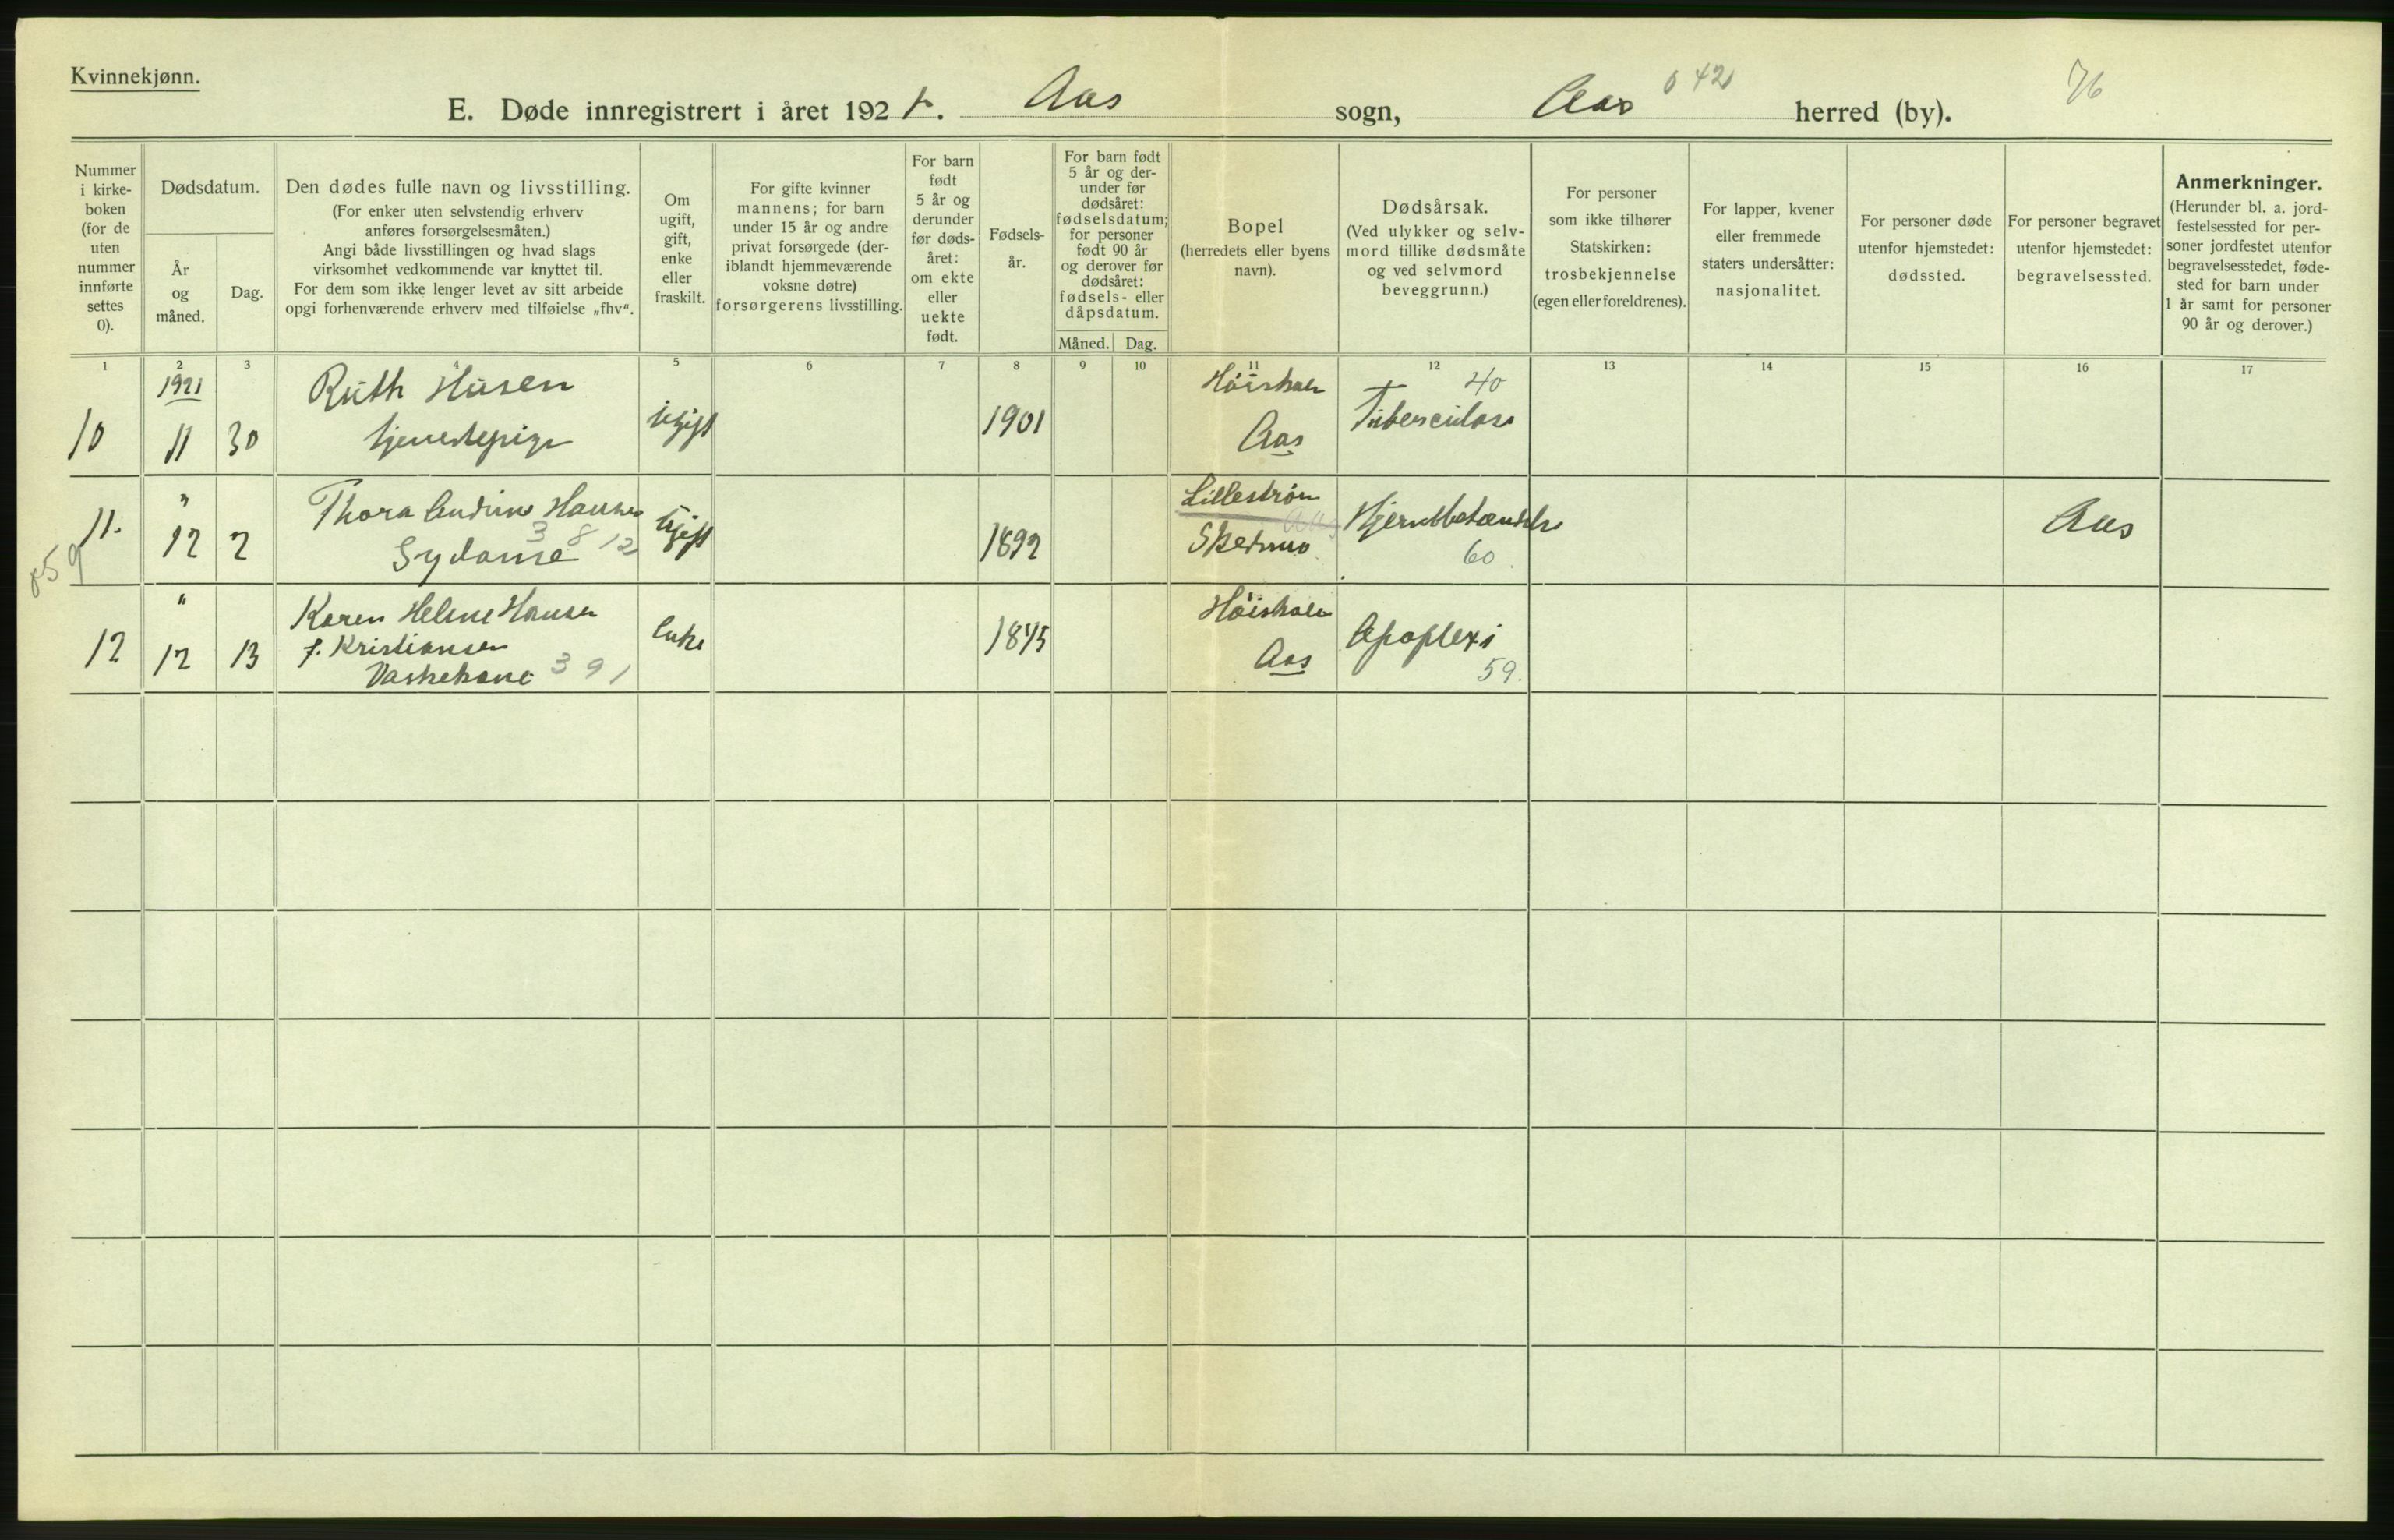 Kvinnekjønn.
E. Døde innregistrert i året 192 1. Aas sogn, Aas herred (by).
0 421
76
Nummer
i kirke-
boken
(for de
uten
nummer
innførte
settes
0).
Dødsdatum.
År
og
måned.
Dag.
Den dødes fulle navn og livsstilling.
(For enker uten selvstendig erhverv
anføres forsørgelsesmåten.)
Angi både livsstillingen og hvad slags
virksomhet vedkommende var knyttet til.
For dem som ikke lenger levet av sitt arbeide
opgi forhenværende erhverv med tilføielse „fhv“.
Om
ugift,
gift,
enke
eller
fraskilt.
For gifte kvinner
mannens; for barn
under 15 år og andre
privat forsørgede (der-
iblandt hjemmeværende
voksne døtre)
forsørgerens livsstilling.
For barn
født
5 år og
derunder
før døds-
året:
om ekte
eller
uekte
født.
Fødsels-
år.
For barn født
5 år og der-
under før
dødsåret:
fødselsdatum;
for personer
født 90 år
og derover før
dødsåret:
fødsels- eller
dåpsdatum.
Måned.
Dag.
Bopel
(herredets eller byens
navn).
Dødsårsak.
(Ved ulykker og selv-
mord tillike dødsmåte
og ved selvmord
beveggrunn.)
For personer
som ikke tilhører
Statskirken:
trosbekjennelse
(egen eller foreldrenes).
For lapper, kvener
eller fremmede
staters undersåtter:
nasjonalitet.
For personer døde
utenfor hjemstedet:
dødssted.
For personer begravet
utenfor hjemstedet:
begravelsessted.
Anmerkninger.
(Herunder bl. a. jord-
festelsessted for per-
soner jordfestet utenfor
begravelsesstedet, føde-
sted for barn under
1 år samt for personer
90 år og derover.)
1 2 3 4 5 6 7 8 9 10 11 12 13 14 15 16 17
1921
10 11 30
Ruth Husen
tjenestepige
ugift
1901
Høiskolen
Aas
40
Tuberculose
11. " 12 2
Thora Andrine Hansen
Sydame
3 8 12
ugift
1892
Lillestrøm
Aas
Skedsmo
Hjernebetændelse
60
Aas
059
12 " 12 13
Karen Helene Hansen
f. Kristiansen
Vaskekone 3 9 1
Enke
1845
Høiskolen
Aas
Apoplexi
59.